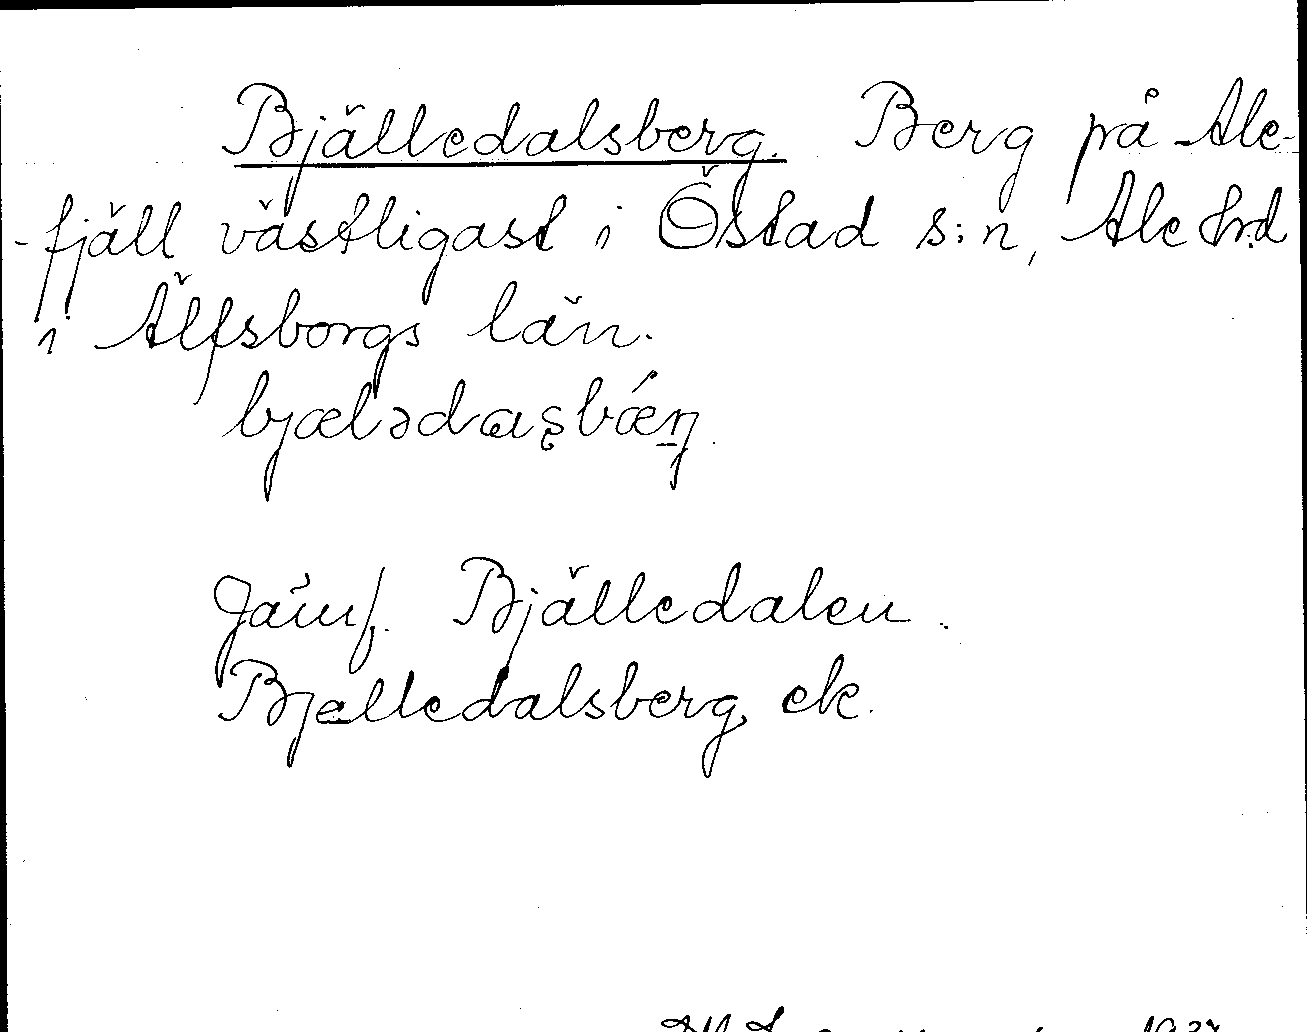 Bjälledalsberg. Berg på Ale-
-fjäll västligast i Östad s:n, Ale hrd
i Älfsborgs län.
bjælədaʂbǽrj
Jämf. Bjälledalen.
Bjelledalsberg ek.